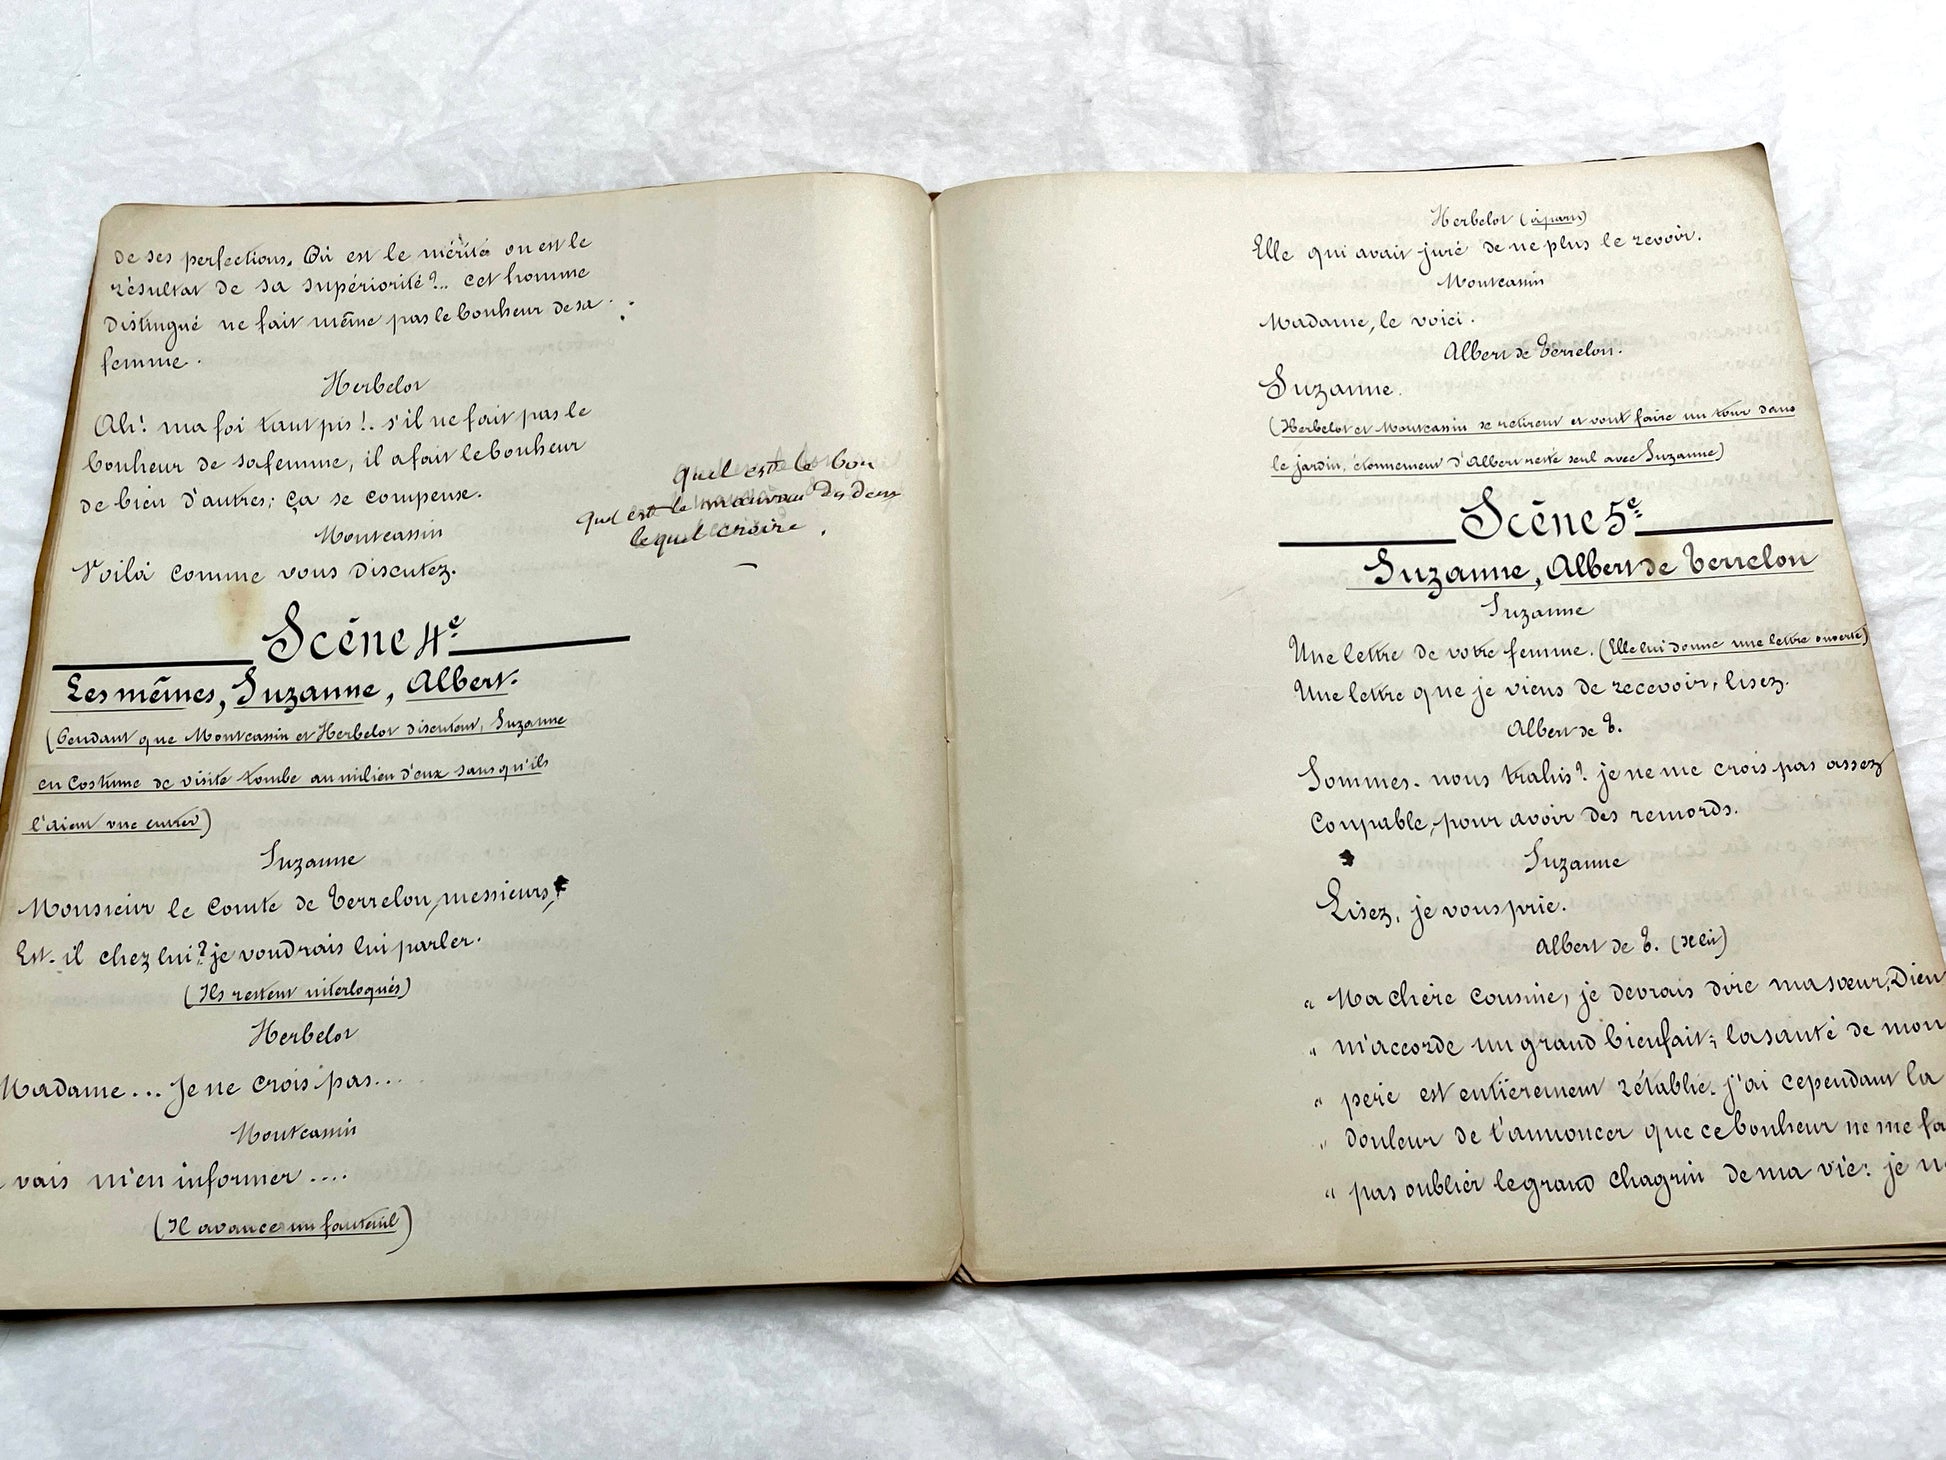 de ses perfections. Où est le mérite où est le
résultat de sa supériorité?.. cet homme
distingué ne fait même pas le bonheur de sa
femme.
Herbelot
Ah! ma foi tant pis!. s'il ne fait pas le
bonheur de sa femme, il a fait le bonheur
de bien d'autres; ça se compense.
Montcassin
Voilà comme vous discutez.
Quel est le bon
quel est le mauvais des deux
lequel croire.
Scène 4e
Les mêmes, Suzanne, Albert.
(Pendant que Montcassin et Herbelot discutent, Suzanne
en costume de visite tombe au milieu d'eux sans qu'ils
l'aient vue entrer)
Suzanne
Monsieur le Comte de Terrelon, messieurs,
Est-il chez lui? je voudrais lui parler.
(Ils restent interloqués)
Herbelot
Madame... Je ne crois pas...
Montcassin
vais m'en informer....
(Il avance un fauteuil)
Herbelot (à part)
Elle qui avait juré de ne plus le revoir.
Montcassin
Madame, le voici.
Albert de Terrelon.
Suzanne.
(Herbelot et Montcassin se retirent et vont faire un tour dans
le jardin, étonnement d'Albert resté seul avec Suzanne)
Scène 5e
Suzanne, Albert de Terrelon
Suzanne
Une lettre de votre femme. (Elle lui donne une lettre ouverte)
Une lettre que je viens de recevoir, lisez.
Albert de T.
Sommes-nous trahis? je ne me crois pas assez
coupable, pour avoir des remords.
Suzanne
Lisez, je vous prie.
Albert de T. (il lit)
" Ma chère cousine, je devrais dire ma sœur, Dieu
" m'accorde un grand bienfait; la santé de mon
" père est entièrement rétablie. j'ai cependant la
" douleur de t'annoncer que ce bonheur ne me fa
" pas oublier le grand chagrin de ma vie: je n